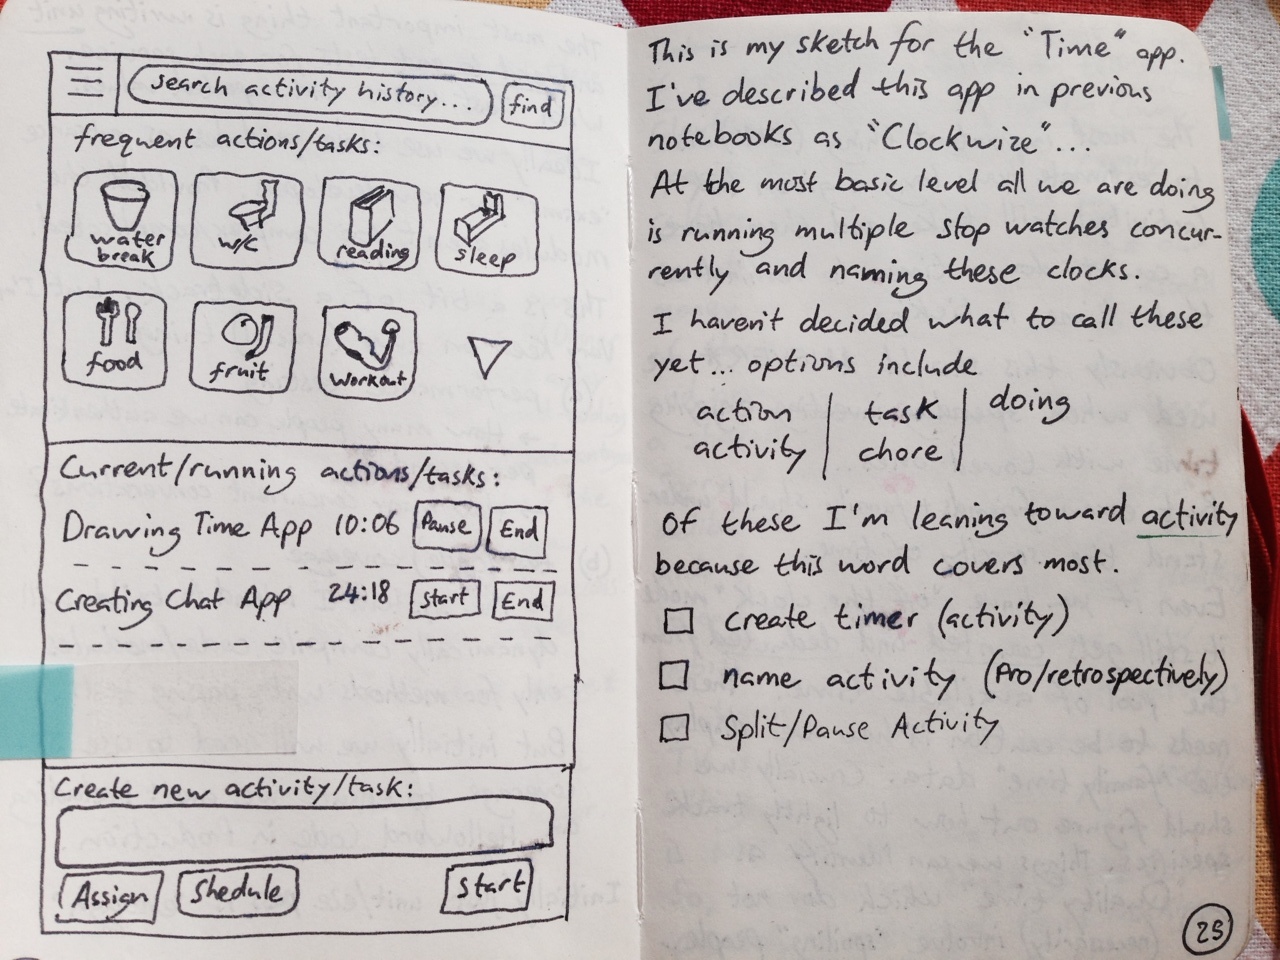 search activity history...
find
frequent actions/tasks:
water
break
w/c
reading
sleep
food
fruit
workout
Current/running actions/tasks:
Drawing Time App 10:06 Pause End
Creating Chat App 24:18 Start End
Create new activity/task:
Assign Shedule Start
This is my sketch for the "Time" app.
I've described this app in previous
notebooks as "Clockwize"...
At the most basic level all we are doing
is running multiple stop watches concur-
rently and naming these clocks.
I haven't decided what to call these
yet... options include
action | task | doing
activity | chore |
Of these I'm leaning toward activity
because this word covers most.
create timer (activity)
name activity (Pro/retrospectively)
Split/Pause Activity
25